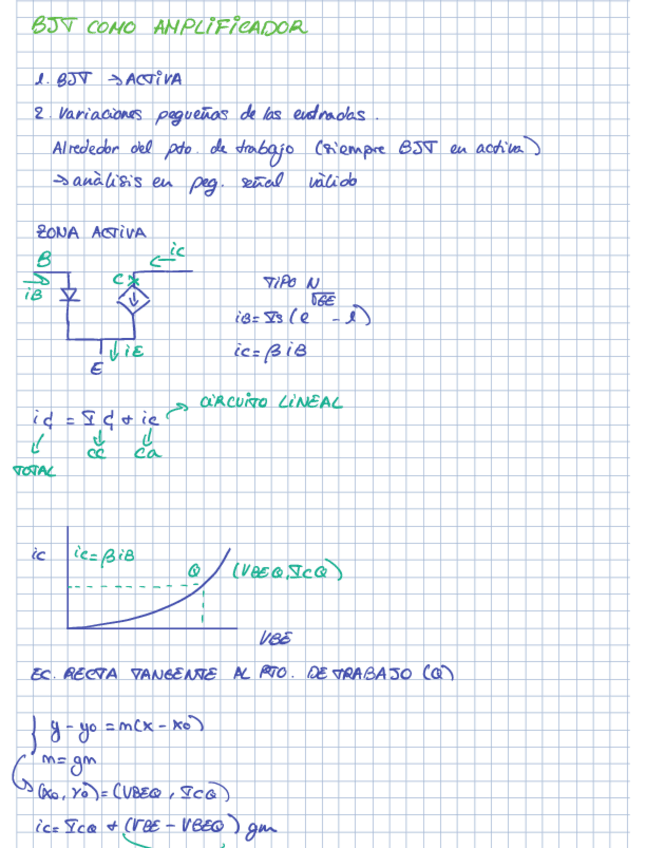 BJT COMO AMPLIFICADOR
1. BJT → ACTIVA
2. Variaciones pequeñas de las entradas.
Alrededor del pto. de trabajo (siempre BJT en activa)
→ anàlisis en peq. señal vàlido
ZONA ACTIVA
B
iB
C
ic
iE
E
TIPO N
VBE
iB = Is (e - 1)
ic = β iB
id = Id + ic → CIRCUITO LINEAL
TOTAL
CC
Ca
ic
ic = β iB
Q
(VBEQ, ICQ)
VBE
EC. RECTA TANGENTE AL PTO. DE TRABAJO (Q)
y - yo = m(x - xo)
m = gm
(xo, yo) = (VBEQ, ICQ)
ic = ICQ + (VBE - VBEQ) gm